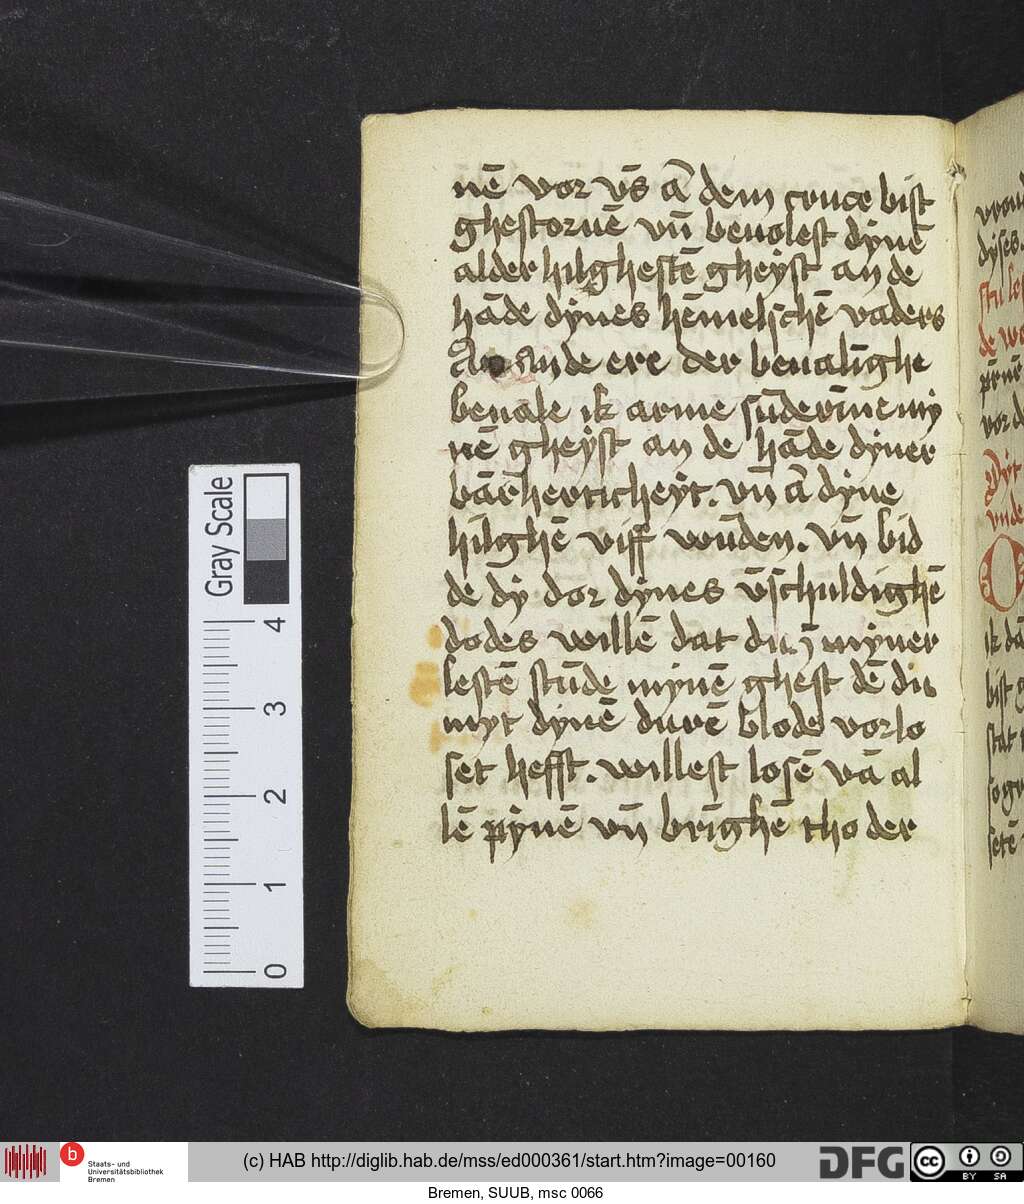 nē vor vs̄ ā dem cruce bist
ghestoruē vn̄ beuolest dynē
alder hilghestē gheyst an de
hāde dynes hēmelschē vaders
An de ere der beualīghe
beuale ik arme sūderīne my
nē gheyst an de hāde dyner
barm̄herticheyt. vn̄ ā dyne
hilghē viff wūden. vn̄ bid
de dy dor dynes vn̄schuldighē
dodes willē dat du ī myner
lestē stūde mynē ghest dē du
myt dynē durē blode vorlo
set hefft. willest losē vā al
lē pynē vn̄ brīghē tho der
Gray Scale
4
3
2
1
0
b Staats- und
Universitätsbibliothek
Bremen
(c) HAB http://diglib.hab.de/mss/ed000361/start.htm?image=00160
DFG
cc BY SA
Bremen, SUUB, msc 0066